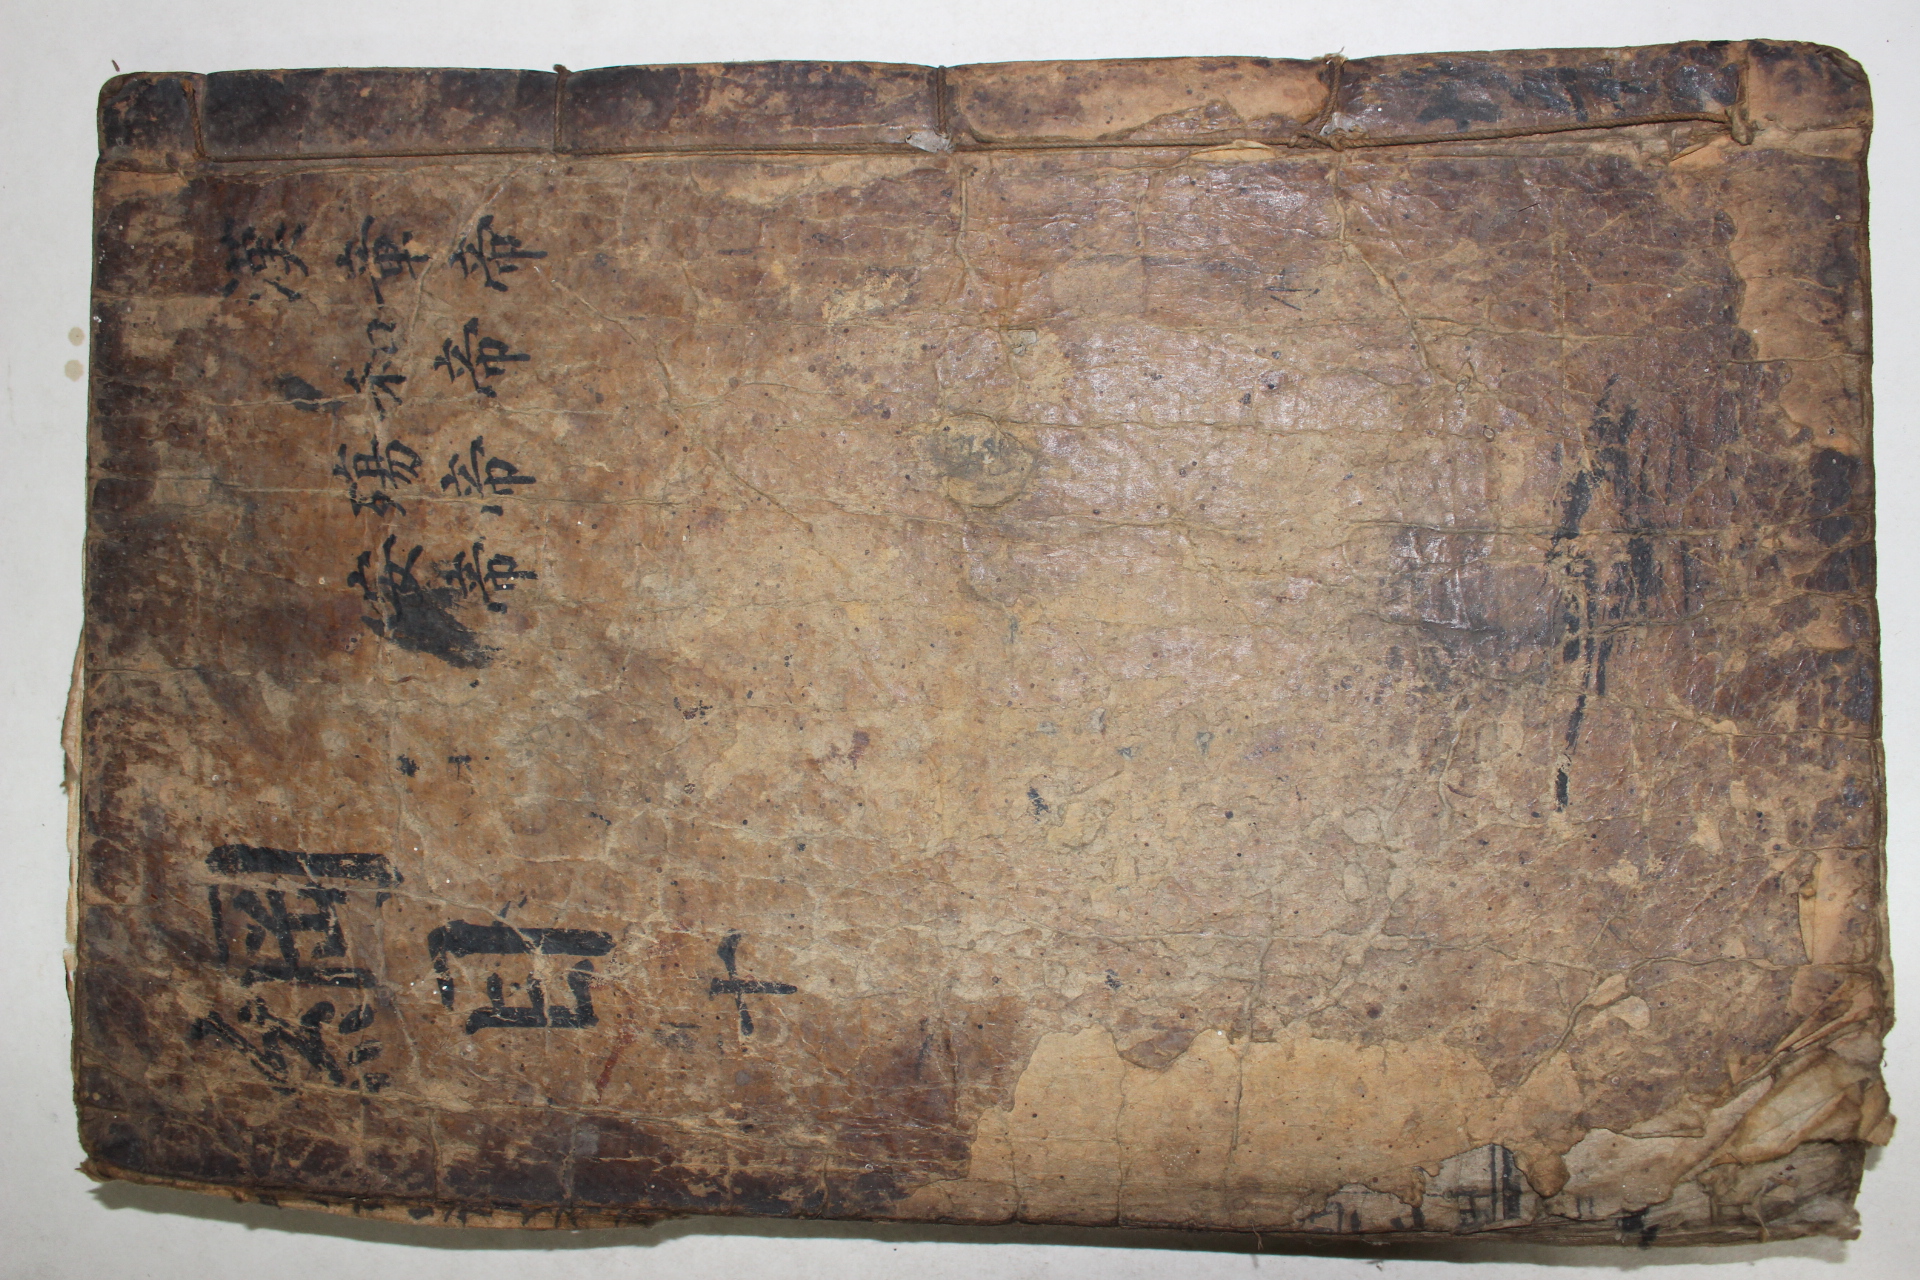 漢章帝
和帝
殤帝
安帝
綱目 十